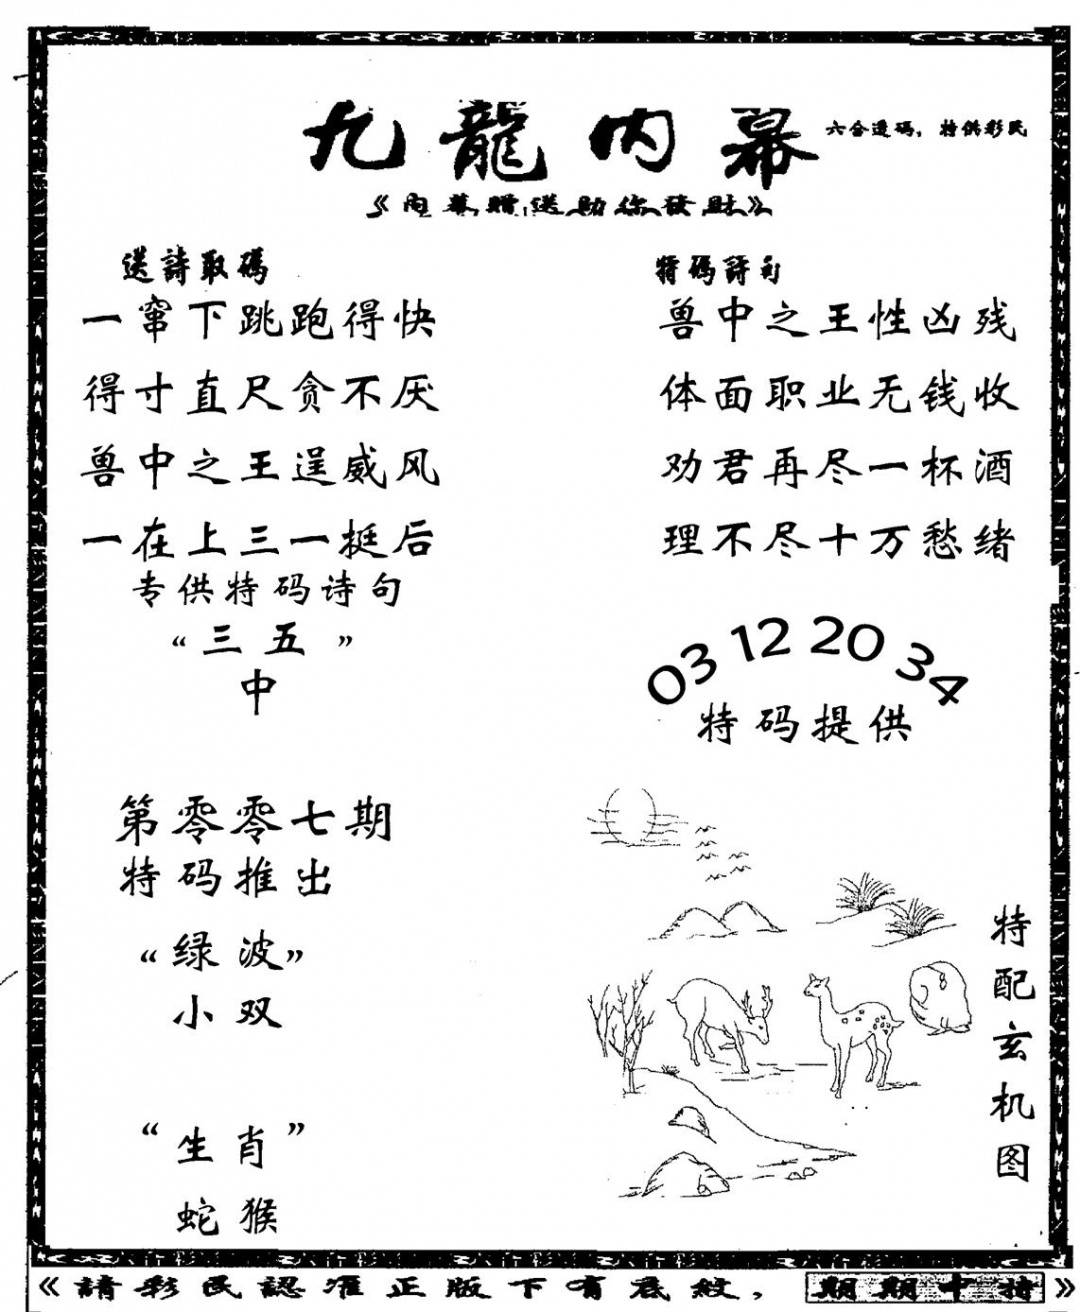 九龍内幕
六合透码，特供彩民
《内幕赠送助你發财》
送詩取碼
一窜下跳跑得快
得寸直尺贪不厌
兽中之王逞威风
一在上三一挺后
专供特码诗句
“三五”
中
第零零七期
特码推出
“绿波”
小双
“生肖”
蛇猴
特碼詩句
兽中之王性凶残
体面职业无钱收
劝君再尽一杯酒
理不尽十万愁绪
03 12 20 34
特码提供
特配玄机图
《請彩民認准正版下有底紋，期期中特》